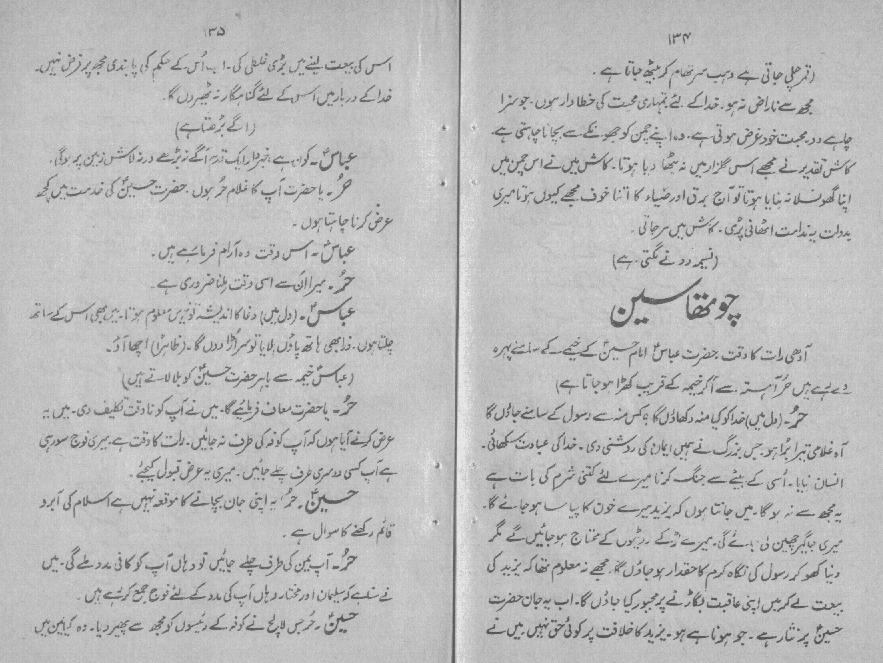 ۱۳۴
(قمر چلی جاتی ہے وہب سر تھام کر بیٹھ جاتا ہے۔
مجھ سے ناراض نہ ہو۔ خدا کے لئے تمہاری محبت کی خطا وار ہوں۔ جو سزا
چاہے دو۔ محبت خود غرض ہوتی ہے۔ وہ اپنے چمن کو جھونکے سے بچانا چاہتی ہے۔
کاش تقدیر نے مجھے اس گلزار میں نہ بٹھا دیا ہوتا۔ کاش میں نے اس چمن میں
اپنا گھونسلا نہ بنایا ہوتا تو آج برق اور ضیاء کا اتنا خوف مجھے کیوں ہوتا میری
بدولت یہ ندامت اٹھانی پڑی۔ کاش میں مر جاتی۔
(نسیمہ رونے لگتی ہے)
چوتھا سین
آدھی رات کا وقت۔ حضرت عباسؑ امام حسینؑ کے خیمے کے سامنے پہرہ
دے رہے ہیں حُر آہستہ سے آ کر خیمہ کے قریب کھڑا ہو جاتا ہے)
حُر۔ (دل میں) خدا کو کیا منہ دکھاؤں گا کس منہ سے رسول کے سامنے جاؤں گا
آہ غلامی تیرا بُرا ہو۔ جس بزرگ نے ہمیں ایمان کی روشنی دی۔ خدا کی عبادت سکھائی۔
انسان بنایا۔ اُسی کے بیٹے سے جنگ کرنا میرے لئے کتنی شرم کی بات ہے
یہ مجھ سے نہ ہو گا۔ میں جانتا ہوں کہ یزید میرے خون کا پیاسا ہو جائے گا۔
میری جاگیر چھین لی جائے گی۔ میرے لڑکے روٹیوں کے محتاج ہو جائیں گے مگر
دنیا کھو کر رسول کی نگاہ کرم کا حقدار ہو جاؤں گا۔ مجھے نہ معلوم تھا کہ یزید کی
بیعت لے کر میں اپنی عاقبت بگاڑنے پر مجبور کیا جاؤں گا۔ اب یہ جان حضرت
حسینؑ پر نثار ہے۔ جو ہونا ہے ہو۔ یزید کا خلافت پر کوئی حق نہیں میں نے
۱۳۵
اس کی بیعت لینے میں بڑی غلطی کی۔ اب اُس کے حکم کی پابندی مجھ پر فرض نہیں۔
خدا کے دربار میں اس کے لئے گناہگار نہ ٹھیروں گا۔
(آگے بڑھتا ہے)
عباسؑ۔ کون ہے، خبردار ایک قدم آگے نہ بڑھے ورنہ لاش زمین پر ہو گی۔
حُر۔ یا حضرت آپ کا غلام حُر ہوں۔ حضرت حسینؑ کی خدمت میں کچھ
عرض کرنا چاہتا ہوں۔
عباسؑ۔ اس وقت وہ آرام فرما رہے ہیں۔
حُر۔ میرا ان سے اسی وقت ملنا ضروری ہے۔
عباسؑ۔ (دل میں) دغا کا اندیشہ تو نہیں معلوم ہوتا۔ میں بھی اس کے ساتھ
چلتا ہوں۔ ذرا بھی ہاتھ پاؤں ہلایا تو سر اُڑا دوں گا۔ (ظاہرا) اچھا آؤ۔
(عباسؑ خیمہ سے باہر حضرت حسینؑ کو بلا لاتے ہیں)
حُر۔ یا حضرت معاف فرمائیے گا۔ میں نے آپ کو نا وقت تکلیف دی۔ میں یہ
عرض کرنے آیا ہوں کہ آپ کوفہ کی طرف نہ جائیں۔ رات کا وقت ہے۔ میری فوج سو رہی
ہے آپ کسی دوسری طرف چلے جائیں۔ میری یہ عرض قبول کیجئے۔
حسینؑ۔ حُر! یہ اپنی جان بچانے کا موقعہ نہیں ہے اسلام کی آبرو
قائم رکھنے کا سوال ہے۔
حُر۔ آپ یمن کی طرف چلے جائیں تو وہاں آپ کو کافی مدد ملے گی۔ میں
نے سنا ہے کہ سلیمان اور مختار وہاں آپ کی مدد کے لئے فوج جمع کر رہے ہیں۔
حسینؑ۔ حُر جس لالچ نے کوفہ کے رئیسوں کو مجھ سے پھیر دیا۔ وہ کیا یمن میں